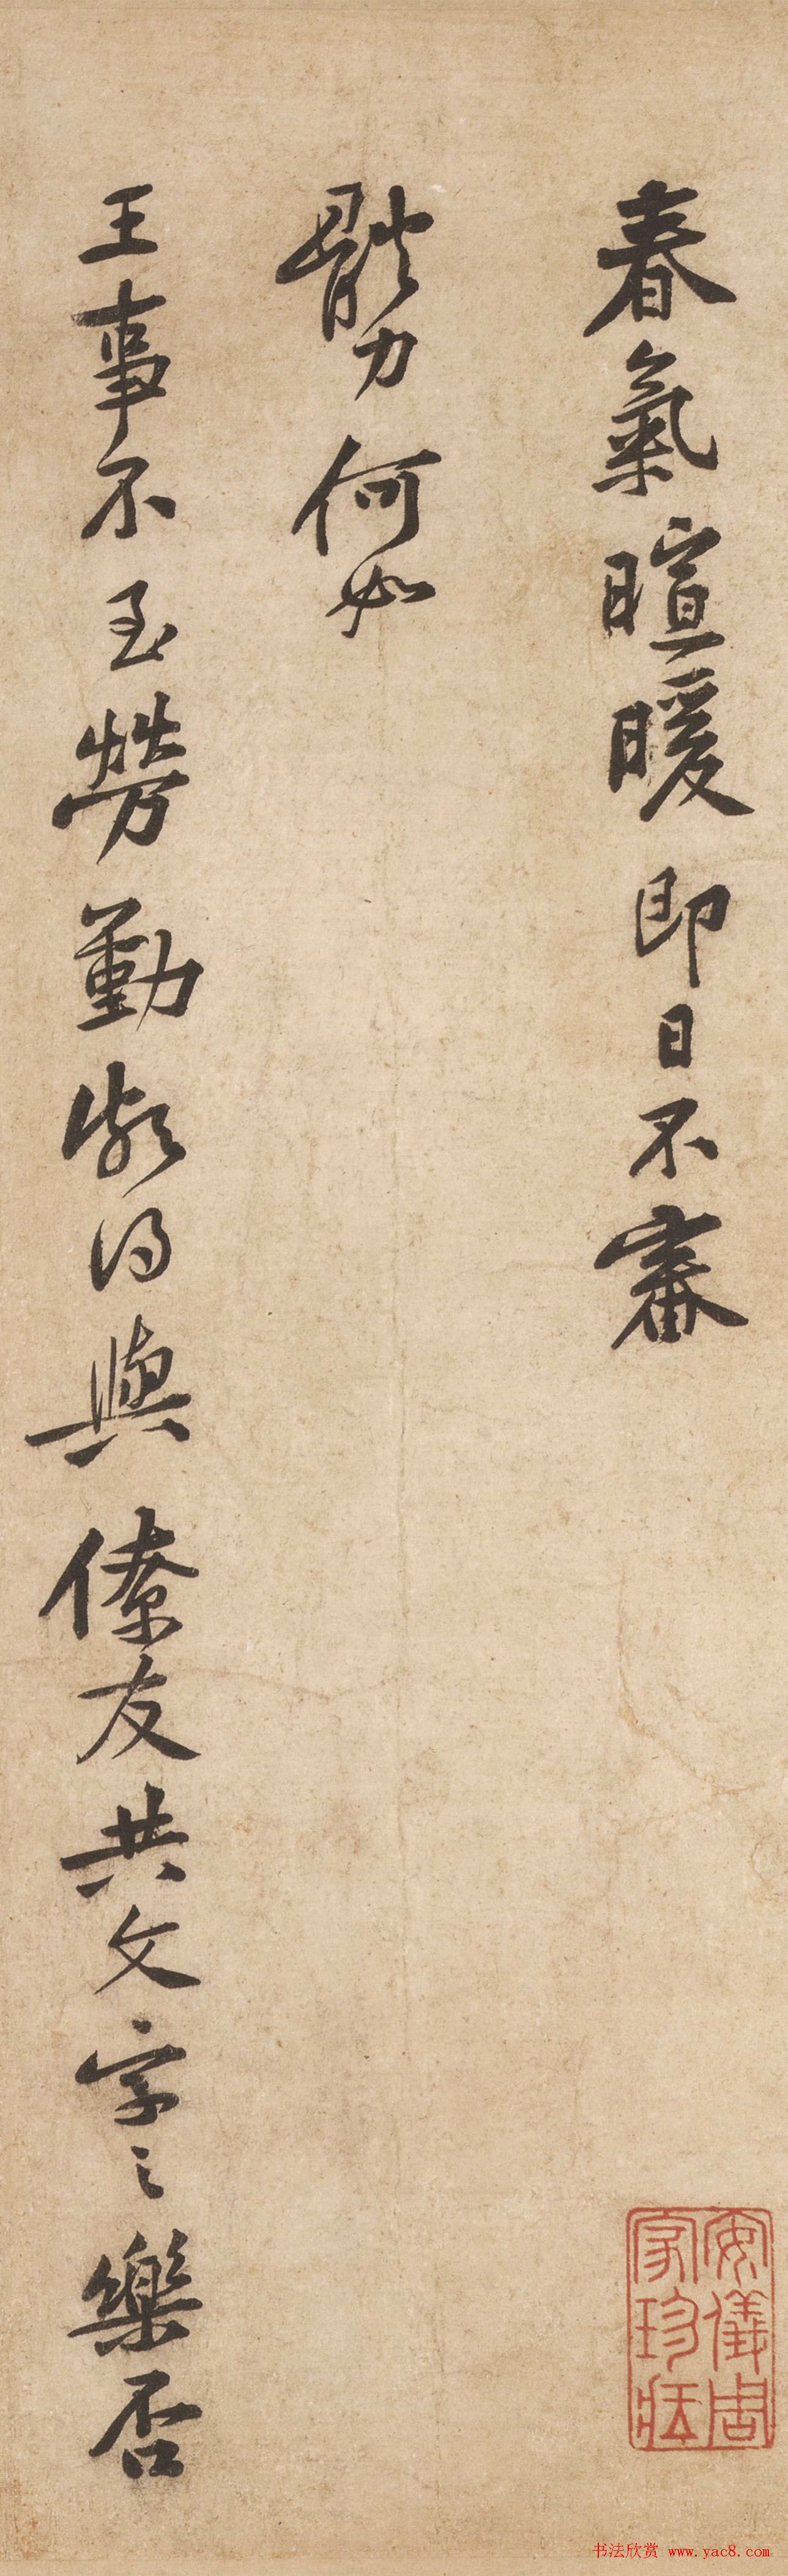 春氣暄暖即日不審
體力何如
王事不至勞勤頗得與僚友共文字之樂否
安儀周
家珍藏
书法欣赏 www.yac8.com